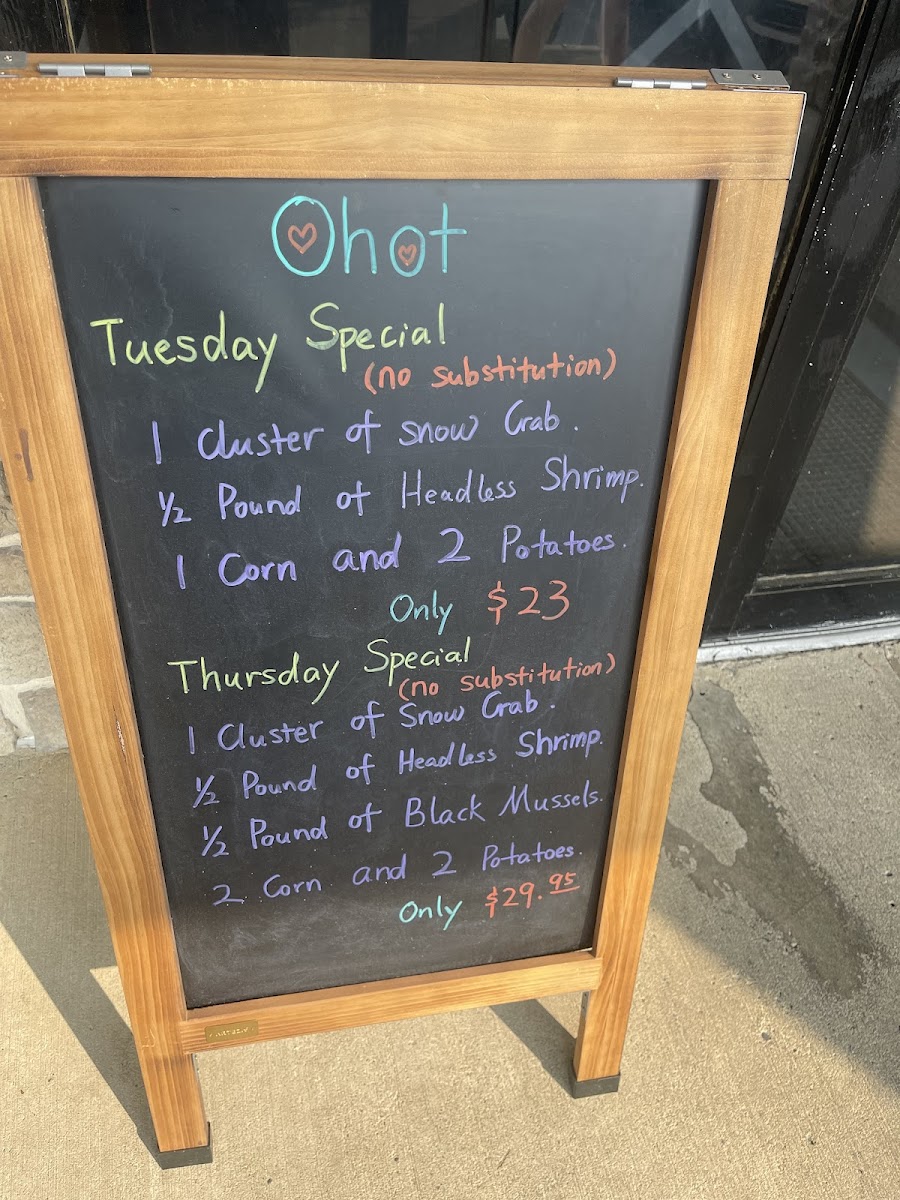 Ohot
Tuesday Special
(no substitution)
1 cluster of snow Crab.
½ Pound of Headless Shrimp.
1 Corn and 2 Potatoes.
Only $23
Thursday Special
(no substitution)
1 Cluster of Snow Crab.
½ Pound of Headless Shrimp.
½ Pound of Black Mussels.
2 Corn and 2 Potatoes.
Only $29.95